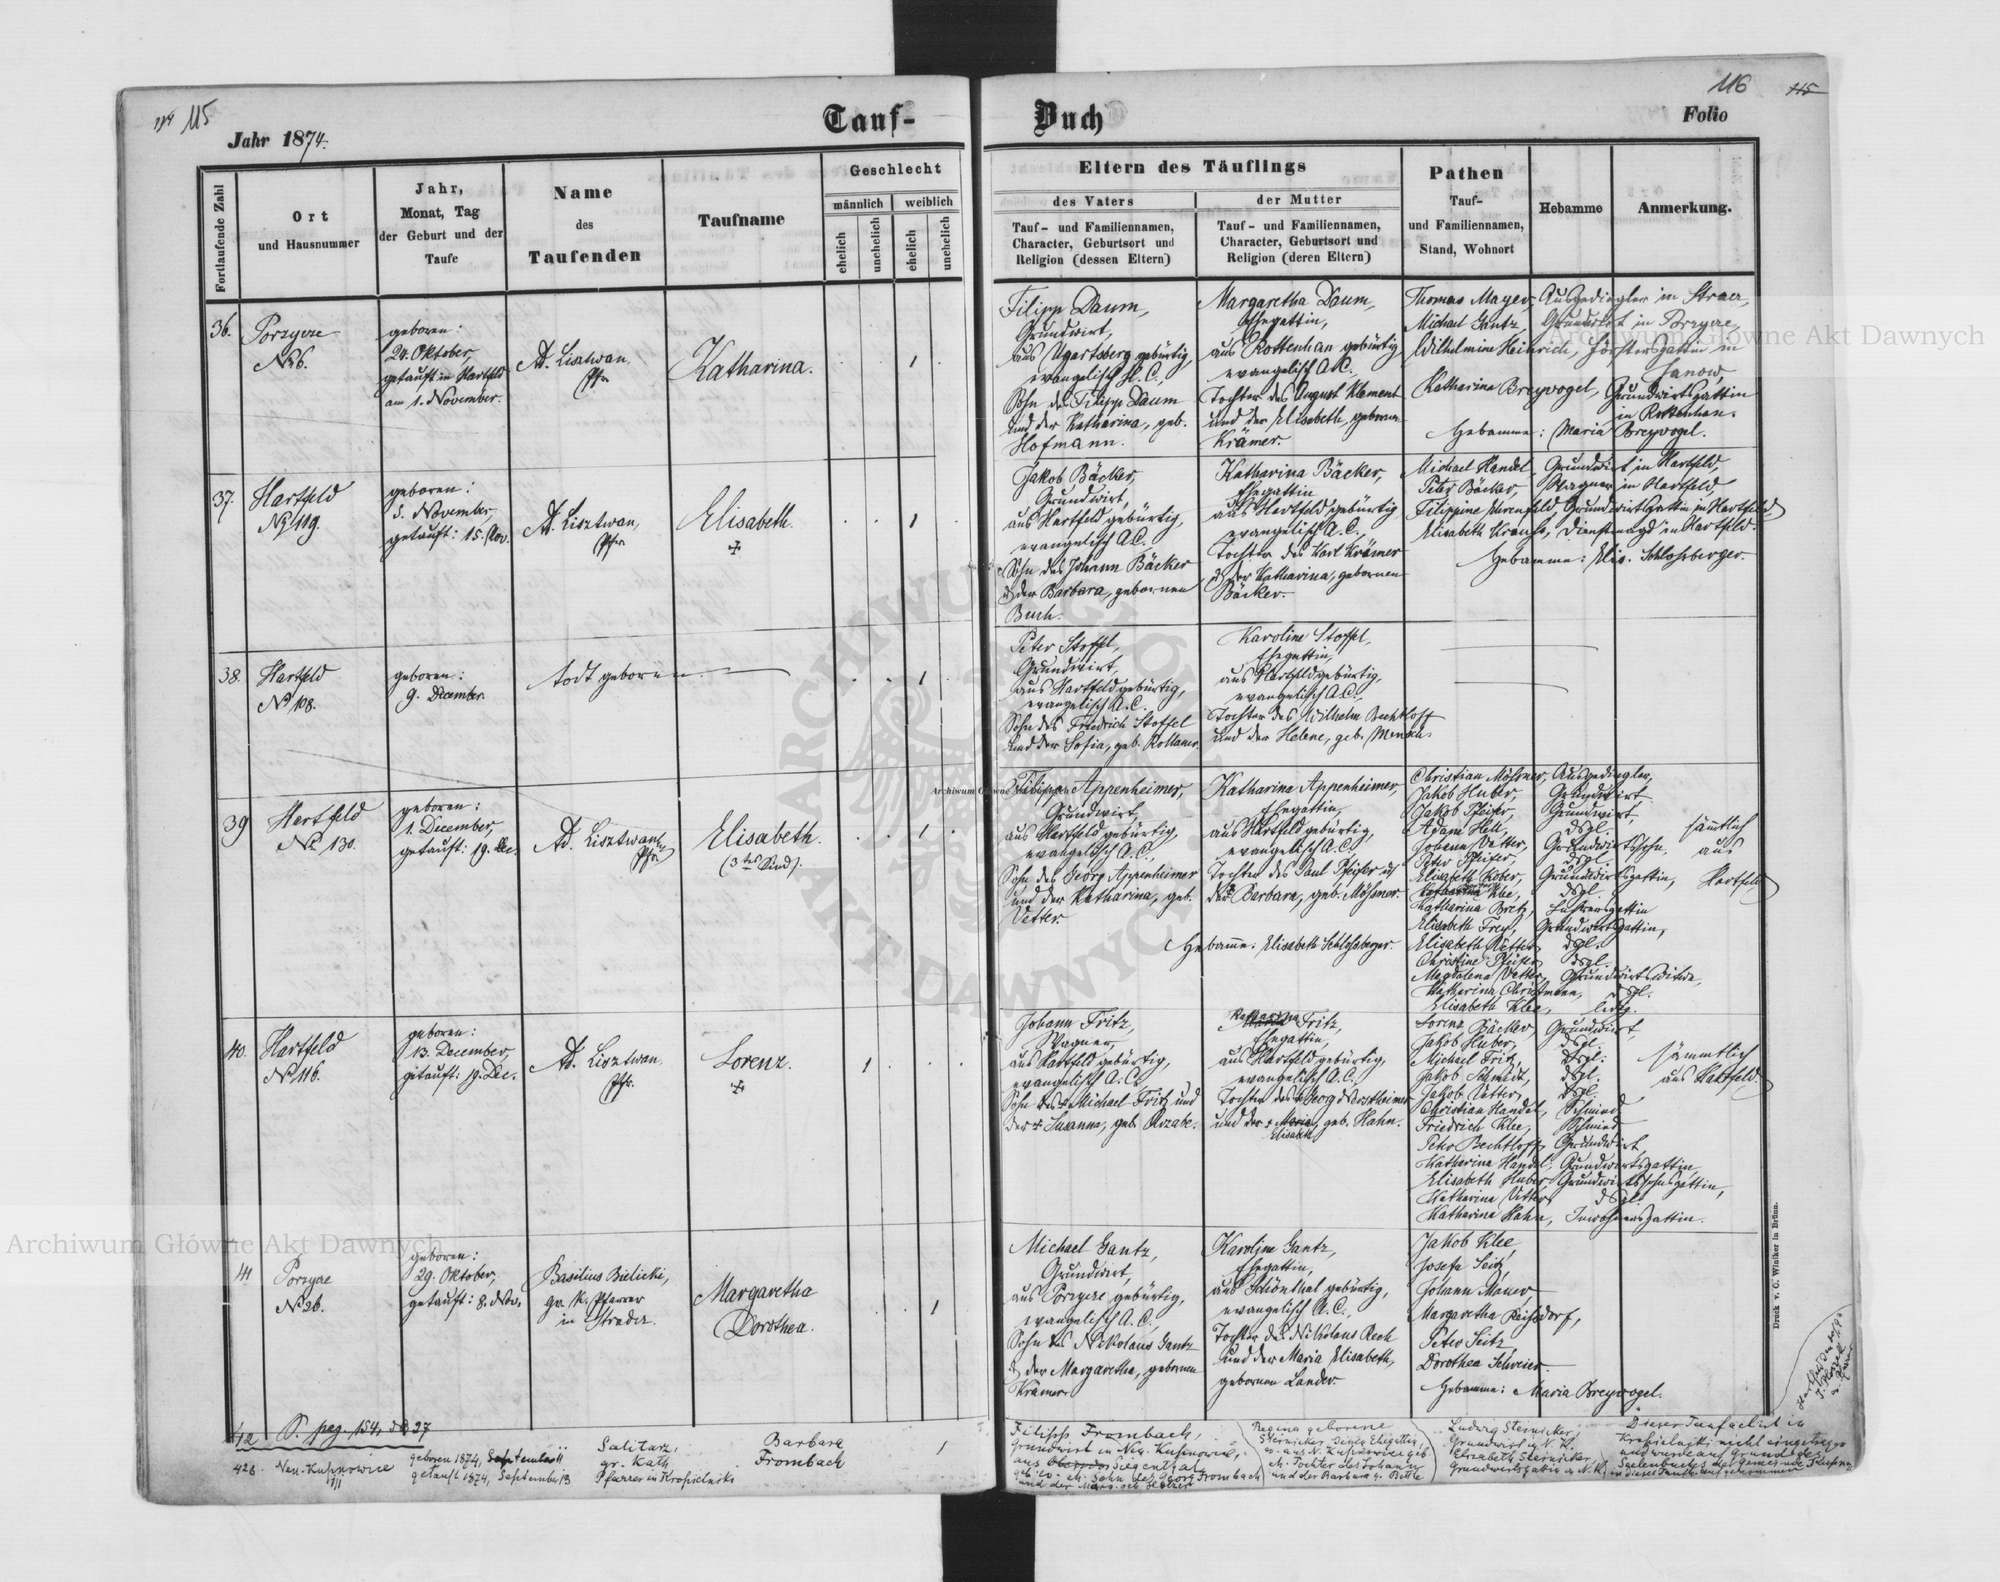 115
116
Jahr 1874.
Tauf-
Buch
Folio
Fortlaufende Zahl
Ort
und Hausnummer
Jahr,
Monat, Tag
der Geburt und der
Taufe
Name
des
Taufenden
Taufname
Geschlecht
männlich
weiblich
ehelich
unehelich
ehelich
unehelich
Eltern des Täuflings
des Vaters
Tauf- und Familiennamen,
Character, Geburtsort und
Religion (dessen Eltern)
der Mutter
Tauf- und Familiennamen,
Character, Geburtsort und
Religion (deren Eltern)
Pathen
Tauf-
und Familiennamen,
Stand, Wohnort
Hebamme
Anmerkung.
36.
Porzycze
No 6.
geboren:
24. Oktober,
getauft in Hartfeld
am 1. November.
Pfr.
Katharina.
1
Filipp Daum,
Grundwirt,
aus Ugartsberg gebürtig,
evangelisch H. C.,
Sohn des Filipp Daum
und der Katharina, geb.
Hofmann.
Margaretha Daum,
Ehegattin,
aus Rottenhan gebürtig
evangelisch A.C.
Tochter des August Klement
und der Elisabeth, gebornen
Krämer.
Thomas Mayer, Ausgedingler in
Michael Gantz, Grundwirt in Porzycze,
Wilhelmine Heinrich, Förstersgattin in
Janow,
Katharina Breyvogel, Grundwirtsgattin
in Rottenhan.
Hebamme: Maria Breyvogel.
37.
Hartfeld
No 119.
geboren:
5. November,
getauft: 15. Nov.
Ad. Lisztwan,
Pfr.
Elisabeth.
1
Jakob Bäcker,
Grundwirt,
aus Hartfeld gebürtig,
evangelisch A.C.
Sohn des Johann Bäcker
der Barbara, gebornen
Buch.
Katharina Bäcker,
Ehegattin
aus Hartfeld gebürtig
evangelisch A.C.,
Tochter des Karl Krämer
der Katharina, gebornen
Bäcker.
Michael Handel, Grundwirt in Hartfeld,
Peter Bäcker, Wagner in Hartfeld
Filippine Ehrenfeld, Grundwirtsgattin in Hartfeld,
Elisabeth Krause, Dienstmagd in Hartfeld.
Hebamme: Elis. Schlossberger.
38.
Hartfeld
No 108.
geboren:
9. December
todt geboren.
1
Peter Stoffel,
Grundwirt,
aus Hartfeld gebürtig,
evangelisch A.C.
Sohn des Friedrich Stoffel
und der Sofia, geb.
Karoline Stoffel,
Ehegattin,
aus Hartfeld gebürtig,
evangelisch A.C.
Tochter des Wilhelm Bechtloff
und der Helene, geb. Mensch.
39
Hartfeld
No 130.
geboren:
1. December,
getauft: 19. Dec.
Ad. Lisztwan
Pfr.
Elisabeth.
(3tes Kind).
1
Filipp Appenheimer,
Grundwirt,
aus Hartfeld gebürtig,
evangelisch A.C.,
Sohn des Georg Appenheimer
und der Katharina, geb.
Vetter.
Katharina Appenheimer,
Ehegattin,
aus Hartfeld gebürtig,
evangelisch A.C.
Tochter des Paul Pfeifer
der Barbara, geb. Mössner.
Hebamme: Elisabeth Schlossberger.
Christian Mössner, Ausgedingler,
Jakob Huber, Grundwirt
Jakob Pfeifer, Grundwirt,
Adam Hell, dsgl.
Johann Vetter, Grundwirtssohn.
Peter Pfeifer, dsgl.
Elisabeth Kober, Grundwirtsgattin,
Katharina Klee, dsgl.
Katharina Bretz,
Elisabeth Frey, Grundwirtsgattin,
Elisabeth Vetter, dsgl.
Christine Pfeifer, dsgl.
Magdalena Vetter, Grundwirtswitwe,
Katharina Christmann, dsgl.
Elisabeth Klee, ledig.
sämtlich
aus
Hartfeld
40.
Hartfeld
No 116.
geboren:
13. December,
getauft: 19. Dec.
Ad. Lisztwan.
Pfr.
Lorenz.
1
Johann Fritz,
Wagner,
aus Hartfeld gebürtig,
evangelisch A.C.
Sohn des Michael Fritz und
der Susanna, geb.
Katharina Fritz,
Ehegattin,
aus Hartfeld gebürtig,
evangelisch A.C.
Tochter des Georg
und der Maria, geb. Hahn.
Elisabeth
Lorenz Bäcker, Grundwirt,
Jakob Huber, dsgl.
Michael Fritz, dsgl.
Jakob Schmidt, dsgl.
Jakob Vetter, dsgl.
Christian Handel, Schmied
Friedrich Klee, Schmied
Peter Bechtloff, Grundwirt
Katharina Handel, Grundwirtsgattin
Elisabeth Huber, Grundwirtssohnsgattin,
Katharina Vetter, dsgl.
Katharina Hahn, Inwohnersgattin.
sämmtlich
aus Hartfeld.
41
Porzycze
No 26.
geboren:
29. Oktober,
getauft: 8. Nov.
Basilius Bielicki,
gr. k. Pfarrer
in
Margaretha
Dorothea.
1
Michael Gantz,
Grundwirt,
aus Porzycze gebürtig,
evangelisch A.C.,
Sohn des Nikolaus Gantz
der Margaretha, gebornen
Krämer
Karoline Gantz,
Ehegattin,
aus Schönthal gebürtig,
evangelisch A.C.,
Tochter des Nikolaus Rech
und der Maria Elisabeth,
gebornen Lander.
Jakob Klee
Josefa Seitz,
Johann Mauer,
Margaretha Reichsdorf,
Peter Seitz
Dorothea Schreier.
Hebamme: Maria Breyvogel.
42
S. pag. 154, No 27
42b. Neu-Kupnowice
geboren 1874, September 11
getauft 1874, September 13
gr. Kath.
Pfarrer in Kropielniki
Barbara
Frombach
1
Filipp Frombach,
Grundwirt in Neu Kupnowice,
aus Siegenthal
Sohn des Georg Frombach
und der Marg. geb.
Regina geborene
Steinicker, seine Ehegattin
Tochter des Johann
und der Barbara g. Bettle
Ludwig Steinicker,
Grundwirt in N. K.
Elisabeth Steinicker,
Grundwirtsgattin in N. K.
Dieser Taufact ist in
Kropielniki nicht eingetragen
und wurde auf Grund des
Seelenbuches der Gemeinde
in dieses Taufb. aufgenommen
Druck v. C. Winiker in Brünn.
Archiwum Główne Akt Dawnych
Archiwum Główne Akt Dawnych
ARCHIWUM GŁÓWNE
AKT DAWNYCH